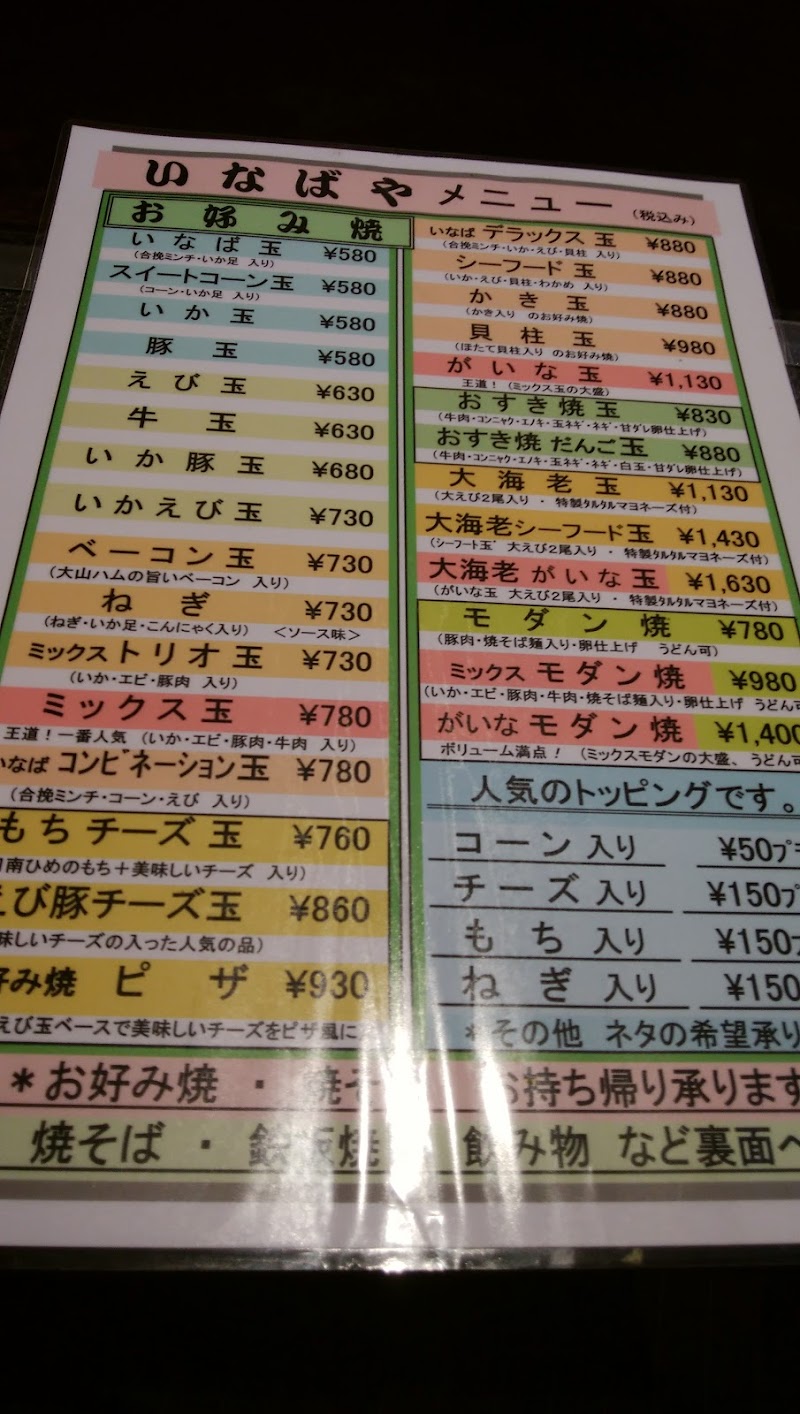 いなばや メニュー (税込み)
お好み焼
いなば玉 ¥580
(合挽ミンチ・いか・いか足 入り)
スイートコーン玉 ¥580
(コーン・いか足 入り)
いか玉 ¥580
豚玉 ¥580
えび玉 ¥630
牛玉 ¥630
いか豚玉 ¥680
いかえび玉 ¥730
ベーコン玉 ¥730
(大山ハムの旨いベーコン 入り)
ねぎ ¥730
(ねぎ・いか足・こんにゃく入り) <ソース味>
ミックストリオ玉 ¥730
(いか・エビ・豚肉 入り)
ミックス玉 ¥780
王道!一番人気 (いか・エビ・豚肉・牛肉 入り)
いなば コンビネーション玉 ¥780
(合挽ミンチ・コーン・えび 入り)
もちチーズ玉 ¥760
南ひめのもち+美味しいチーズ 入り)
えび豚チーズ玉 ¥860
味しいチーズの入った人気の品)
好み焼 ピザ ¥930
えび玉ベースで美味しいチーズをピザ風に
いなば デラックス玉 ¥880
(合挽ミンチ・いか・えび・貝柱 入り)
シーフード玉 ¥880
(いか・えび・貝柱・わかめ 入り)
かき玉 ¥880
(かき入り のお好み焼)
貝柱玉 ¥980
(ほたて貝柱入り のお好み焼)
がいな玉 ¥1,130
王道! (ミックス玉の大盛)
おすき焼玉 ¥830
(牛肉・コンニャク・エノキ・玉ネギ・ネギ・甘ダレ卵仕上げ)
おすき焼だんご玉 ¥880
(牛肉・コンニャク・エノキ・玉ネギ・ネギ・白玉・甘ダレ卵仕上げ)
大海老玉 ¥1,130
(大えび2尾入り ・ 特製タルタルマヨネーズ付)
大海老シーフード玉 ¥1,430
(シーフード玉 大えび2尾入り ・ 特製タルタルマヨネーズ付)
大海老がいな玉 ¥1,630
(がいな玉 大えび2尾入り ・ 特製タルタルマヨネーズ付)
モダン焼 ¥780
(豚肉・焼そば麺入り・卵仕上げ うどん可)
ミックスモダン焼 ¥980
(いか・エビ・豚肉・牛肉・焼そば麺入り・卵仕上げ うどん可
がいなモダン焼 ¥1,400
ボリューム満点! (ミックスモダンの大盛、うどん可
人気のトッピングです。
コーン入り ¥50プ
チーズ入り ¥150プ
もち入り ¥150プ
ねぎ入り ¥150
*その他 ネタの希望承り
*お好み焼 ・ 焼そ お持ち帰り承ります
焼そば ・ 鉄板焼 飲み物 など裏面へ